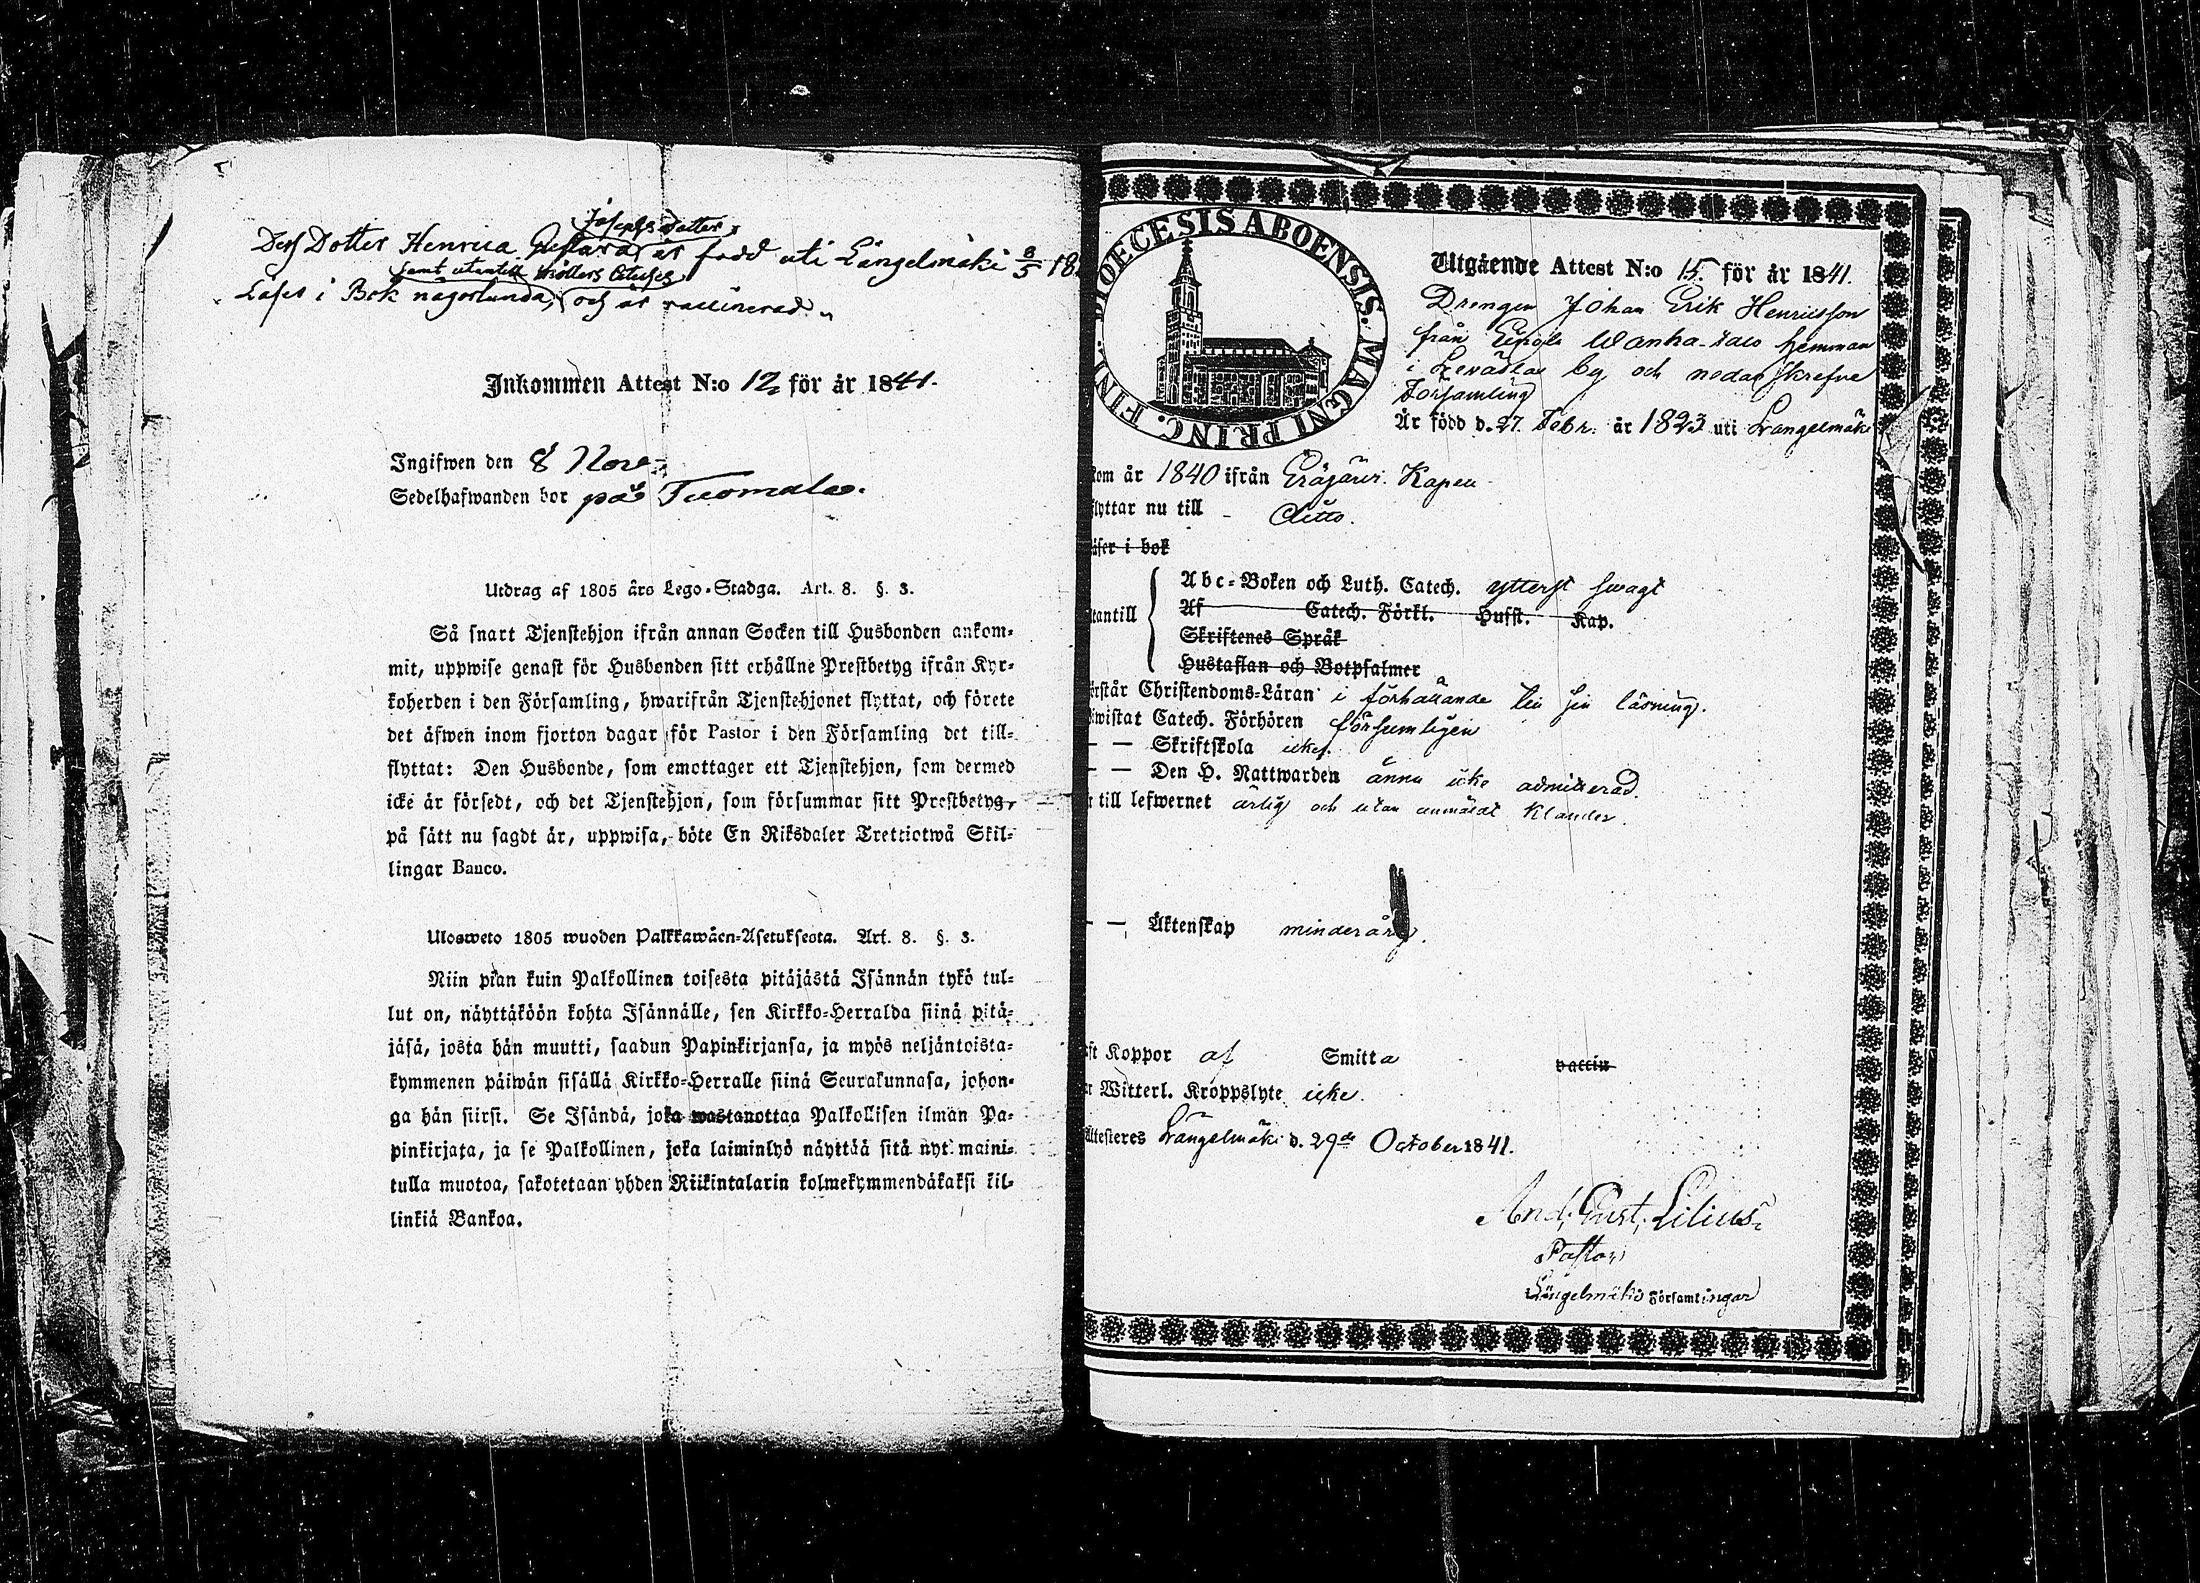 Josephs dotter
Dess Dotter Henrica Gustava är född uti Längelmäki 8/5 18
samt utantill Möllers Cateches
Läser i Bok någorlunda, och är vaccinerad.
Inkommen Attest N:o 12 för år 1841.
Ingifwen den 8 Nov.
Sedelhafwanden bor på Tuomala.
Utdrag af 1805 års Lego-Stadga. Art. 8. §. 3.
Så snart Tjenstehjon ifrån annan Socken till Husbonden ankom-
mit, uppwise genast för Husbonden sitt erhållne Prestbetyg ifrån Kyr-
koherden i den Församling, hwarifrån Tjenstehjonet flyttat, och förete
det äfwen inom fjorton dagar för Pastor i den Församling det till-
flyttat: Den Husbonde, som emottager ett Tjenstehjon, som dermed
icke är försedt, och det Tjenstehjon, som försummar sitt Prestbetyg,
på sätt nu sagdt är, uppwisa, böte En Riksdaler Trettiotwå Skil-
lingar Banco.
Uloswеto 1805 wuoden Palkkawäen-Asetuksesta. Art. 8. §. 3.
Niin pian kuin Palkollinen toisesta pitäjästä Isännän tykö tul-
lut on, näyttäköön kohta Isännälle, sen Kirkko-Herralda siinä pitä-
jäsä, josta hän muutti, saadun Papinkirjansa, ja myös neljäntoista-
kymmenen päiwän sisällä Kirkko-Herralle siinä Seurakunnasa, johon-
ga hän siirsi. Se Isändä, joka wastanottaa Palkollisen ilman Pa-
pinkirjata, ja se Palkollinen, joka laiminlyö näyttää sitä nyt maini-
tulla muotoa, sakotetaan yhden Riikintalarin kolmekymmendäkaksi kil-
linkiä Bankoa.
DIOECESIS ABOENSIS. MAGNI PRINC. FINL.
Utgående Attest N:o 15. för år 1841.
Drengen Johan Erik Henricsson
från Wanha-talo hemman
i by och nedanskrefne
Församling
Är född d. 27. Febr. år 1823 uti Längelmäki
kom år 1840 ifrån Eräjärvi Kapell
flyttar nu till Ditto.
äser i bok
tantill Abc-Boken och Luth. Catech. ytterst swagt
Af Catech. Förkl. Hufst. Kap.
Skriftenes Språk
Hustaflan och Botpsalmer
örstår Christendoms-Läran i förhållande till sin läsning.
wistat Catech. Förhören försumligen
— — Skriftskola icke.
— — Den H. Nattwarden ännu icke admitterad.
r till lefwernet ärlig och utan anmäldt klander.
— — Äktenskap minderårig.
ft Koppor af Smitta vaccin
r Witterl. Kroppslyte icke.
Attesteres Längelmäki d. 29de October 1841.
And. Gust. Lilius.
Pastor
Längelmäki Församlingar